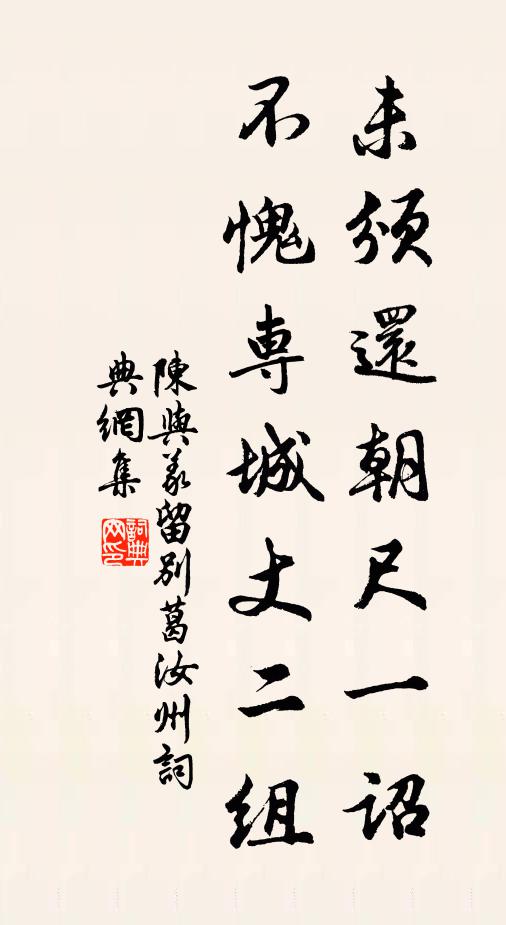 未須還朝尺一詔
不愧専城丈二組
陳與義留別葛汝州詞
典網集
詞典網印